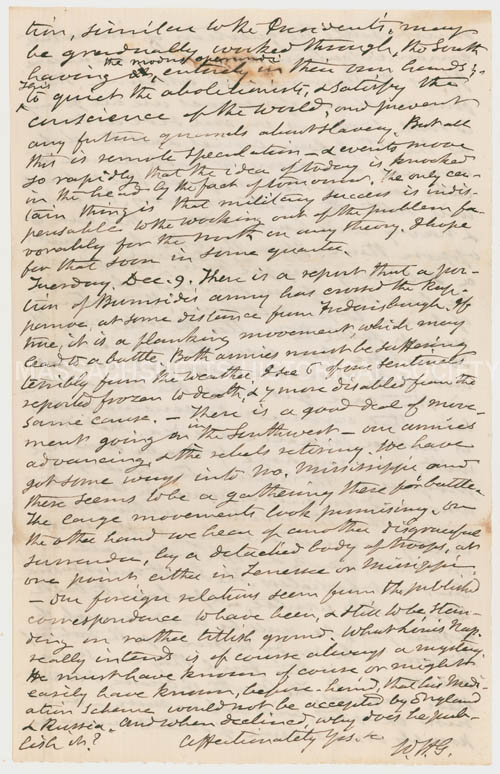 tion, similar to the Presidents, may
be gradually worked through, the South
having the modus operandi entirely in their own hands;
this to quiet the abolitionists, & satisfy the
conscience of the world, and prevent
any future quarrels about slavery. But all
this is remote speculation — & events move
so rapidly that the idea of today is knocked
in the head by the fact of tomorrow. The only cer-
tain thing is that military success is indis-
pensable to the working out of the problem fa-
vorably for the North on any theory. I hope
for that soon in some quarter.
Tuesday. Dec. 9. There is a report that a por-
tion of Burnsides army has crossed the Rap-
at some distance from Fredericksburgh. If
true, it is a flanking movement which may
lead to a battle. Both armies must be suffering
terribly from the weather. I see 6 of our sentinels
reported frozen to death, & 7 more disabled from the
same cause. — There is a good deal of move-
ments going on in the Southwest — our armies
advancing & the rebels retiring. We have
got some ways into No. Mississippi and
there seems to be a gathering there for battle.
The large movements look promising. On
the other hand we hear of another disgraceful
surrender, by a detached body of troops, at
one point, either in Tenessee or Mississippi.
— Our foreign relations seem from the published
correspondence to have been, & still to be stan-
ding on rather ticklish ground. What Louis Nap.
really intends is of course always a mystery.
He must have known of course or might
easily have known, before-hand, that his Medi-
ation scheme would not be accepted by England
& Russia. And when declined, why does he pub-
lish it?
Affectionately Yrs.
W.H.G.
MASSACHUSETTS HISTORICAL SOCIETY